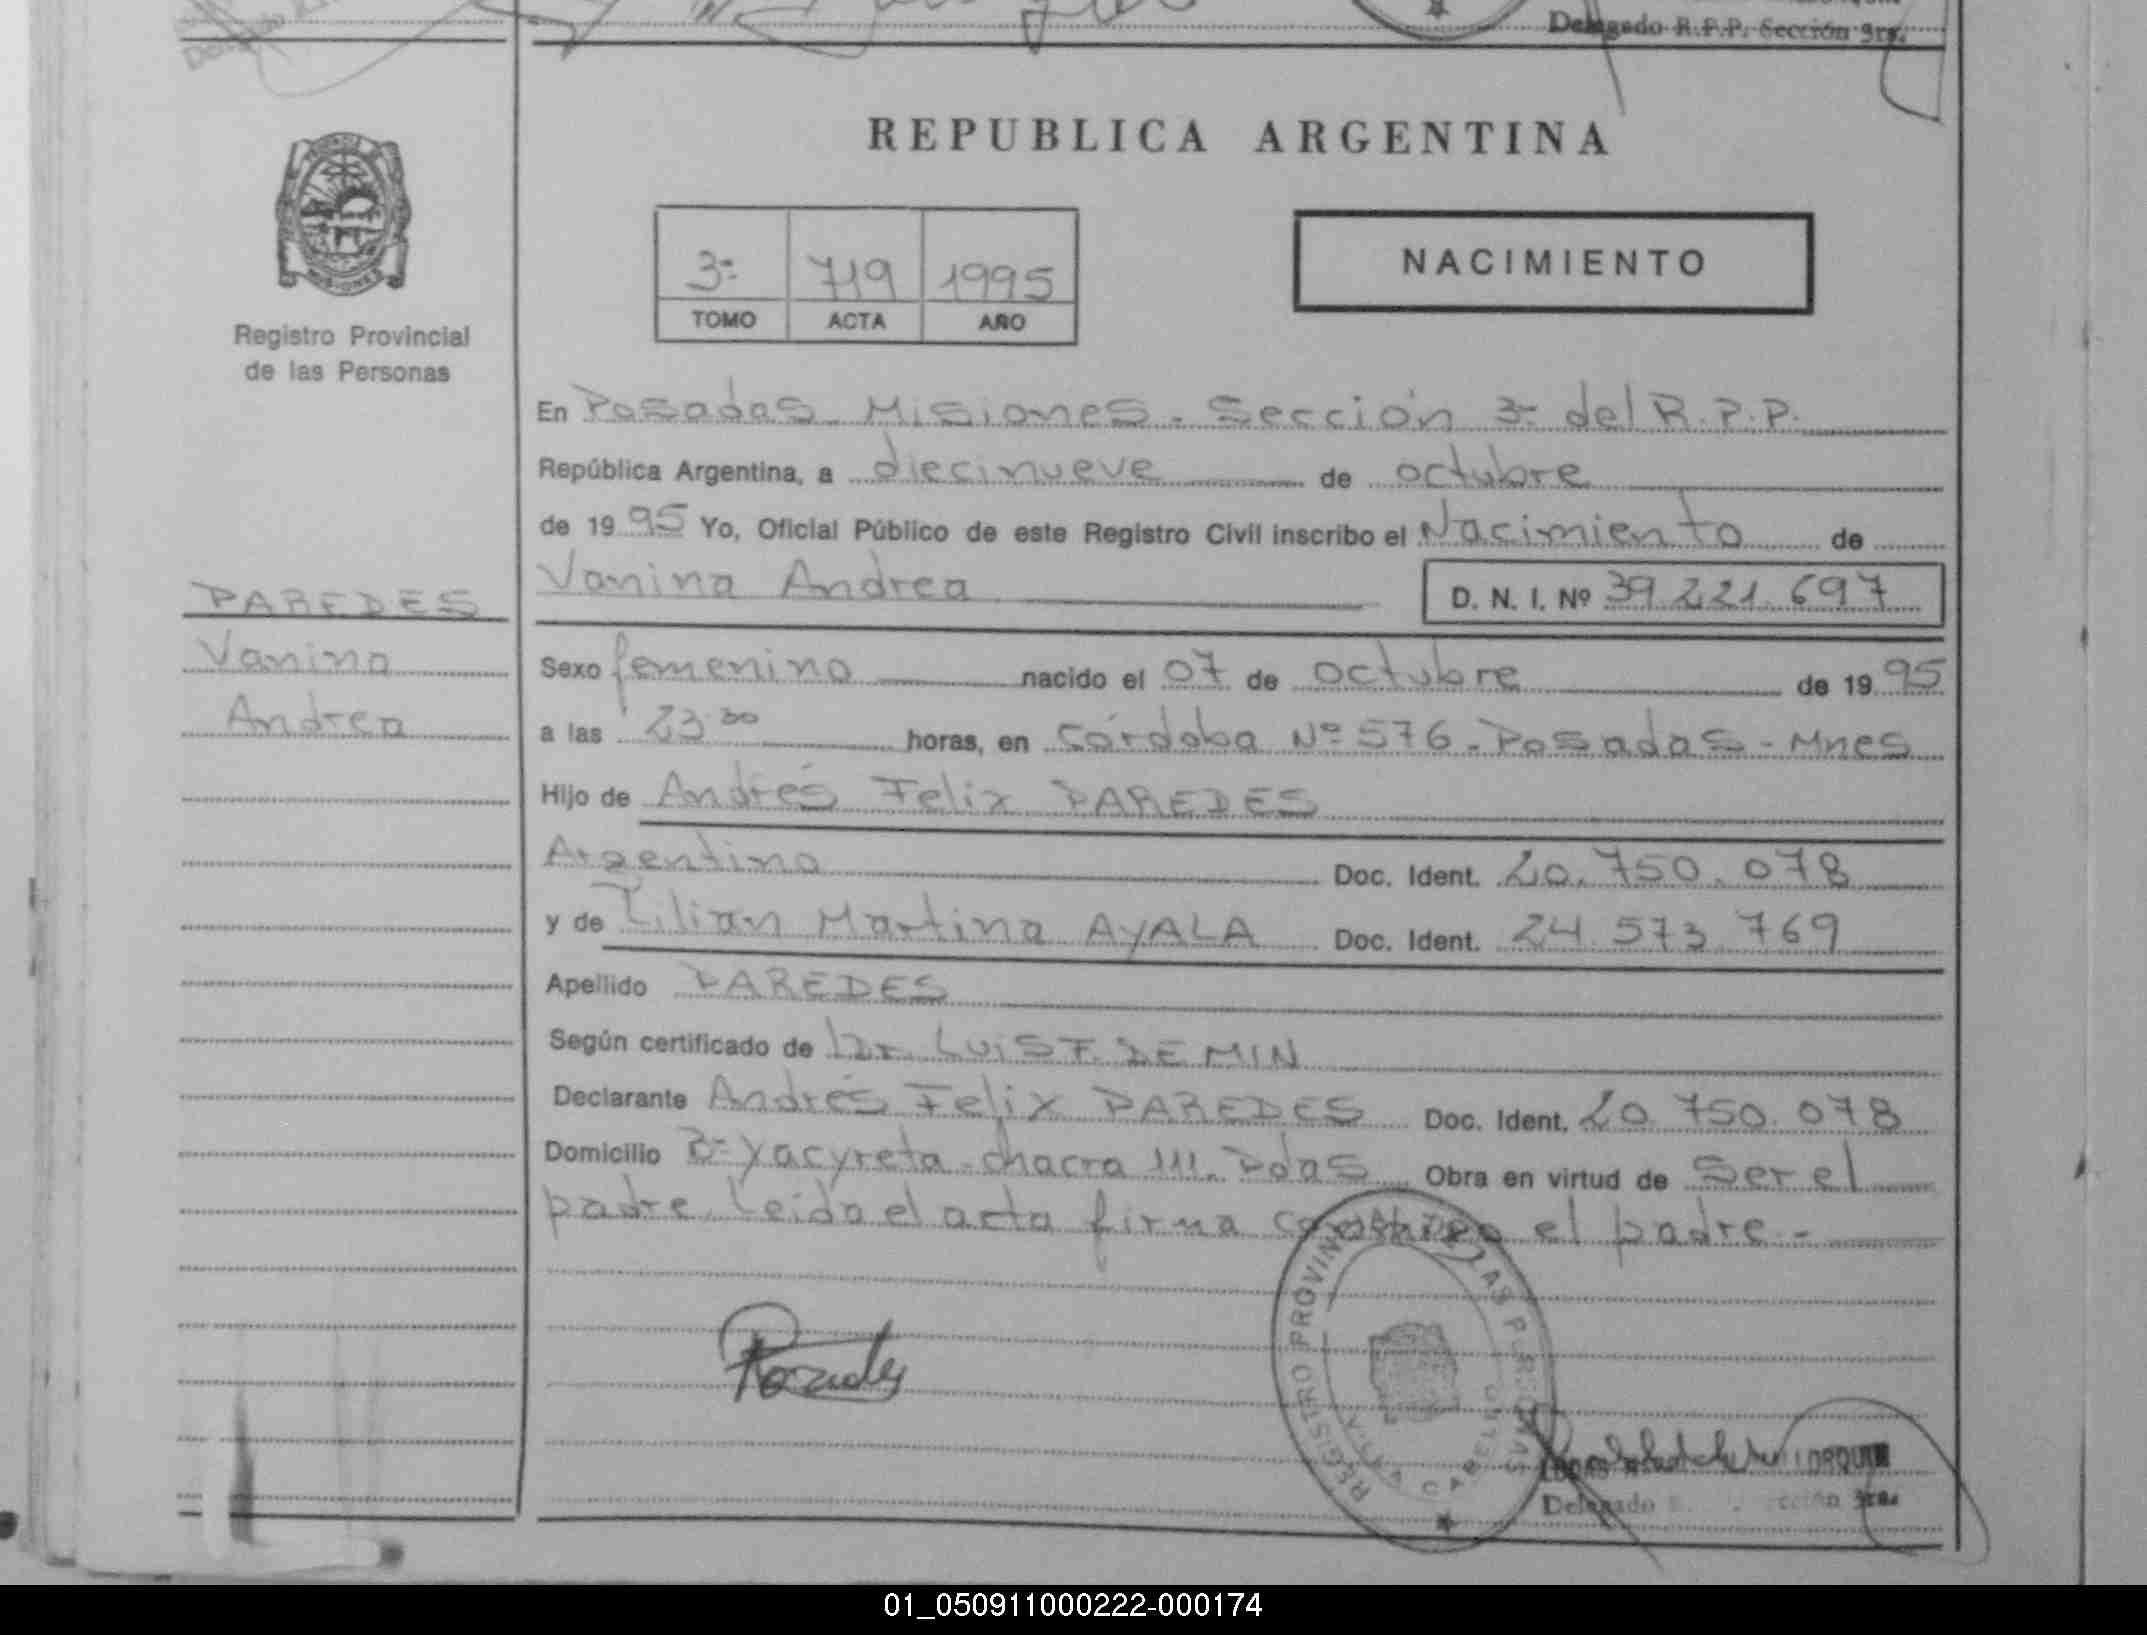 Delegado R.P.P. Sección 3ra.
REPUBLICA ARGENTINA
3ª 719 1995
TOMO ACTA AÑO
NACIMIENTO
MISIONES
Registro Provincial
de las Personas
En Posadas Misiones. Sección 3ª del R.P.P.
República Argentina, a diecinueve de octubre
de 1995 Yo, Oficial Público de este Registro Civil inscribo el Nacimiento de
Vanina Andrea D. N. I. Nº 39.221.697
PAREDES
Vanina
Andrea
Sexo femenino nacido el 07 de octubre de 1995
a las 23.30 horas, en Córdoba Nº 576. Posadas - Mnes
Hijo de Andrés Felix PAREDES
Argentino Doc. Ident. 20.750.078
y de Lilian Martina AyALA Doc. Ident. 24.573.769
Apellido PAREDES
Según certificado de Dr. LUIS F. DE MIN
Declarante Andrés Felix PAREDES Doc. Ident. 20.750.078
Domicilio Bº Yacyreta - chacra 111. Pdas Obra en virtud de Ser el
padre. Leida el acta firma conmigo el padre. -
Paredes
REGISTRO PROVINCIAL DE LAS PERSONAS
Delegado Sección 3ra.
01_050911000222-000174